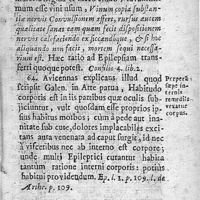 mum esse vini usum, Vinum copia substan-
tiæ nervis Convulsionem affert, rursus autem
qualitate sanat eam quam fecit dispositionem
nervis calefaciendo exsiccandoque, & si hoc
aliquando non facit, mortem sequi necessa-
rium est. Hæc ratio ad Epilepsiam trans-
ferri quoque potest. Consilio 4. lib. 2.
64. Avicennas explicans illud quod
scripsit Galen. in Arte parva, Habitudo
corporis est in iis partibus quæ oculis subji-
ciuntur, vult quosdam esse proprios ip-
sius habitus morbos; cum à pede aut in-
quadam sub cute, dolores implacabiles exci-
ans aura venenata ad caput surgit, id nec
à visceribus nec ab interno est corpore;
unde multi Epileptici curantur habita
tantum ratione interni corporis: potius
habitui providendum. Ep. l. 2. p. 109. l. de
Arthr. p. 109.
Præpara
sæpe in-
ternis
remediis
vexatur
corpus.